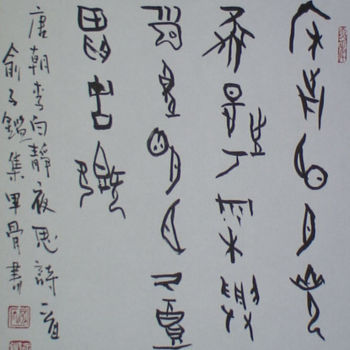 牀前明月光
疑是地上霜舉
頭望明月低頭
思故鄉
唐朝李白靜夜思詩一首
俞子鑑集甲骨書